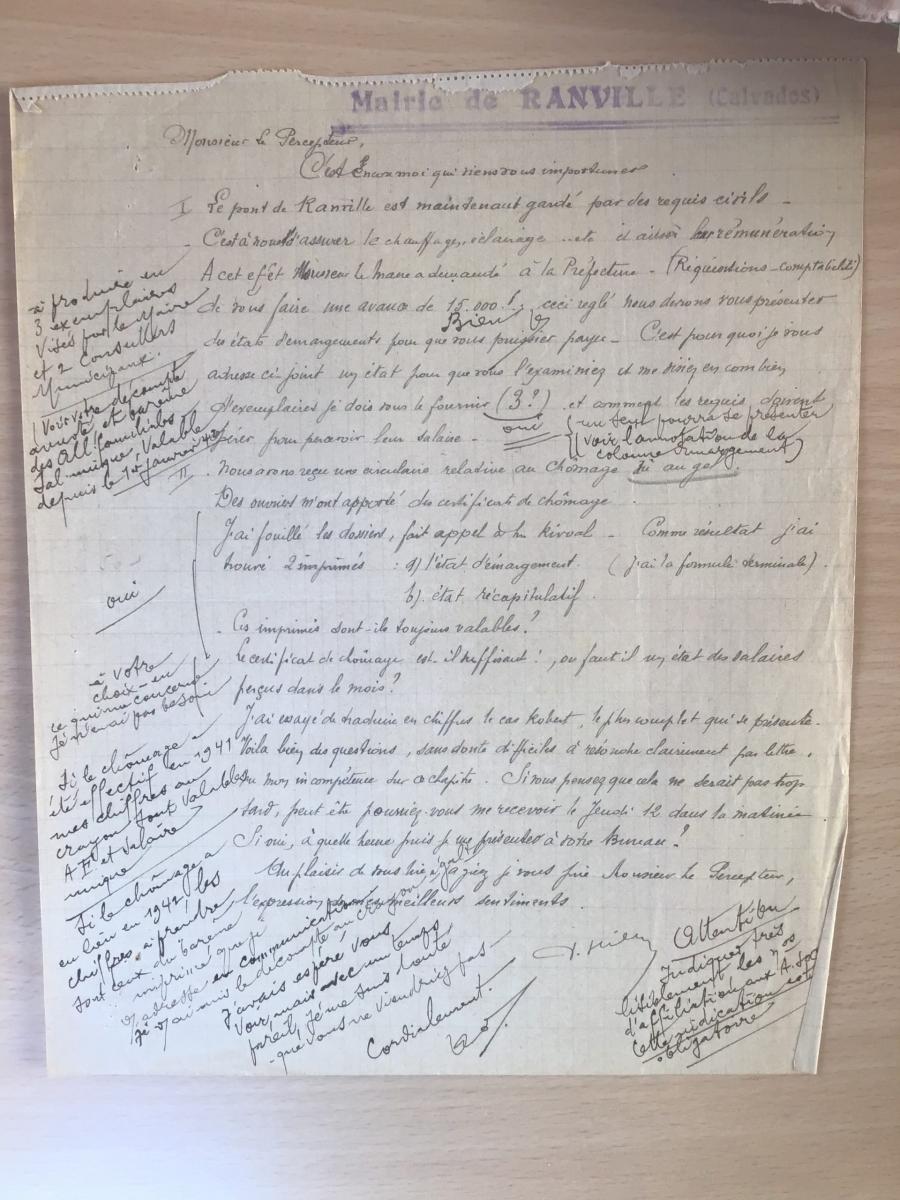 Mairie de RANVILLE (Calvados)
Monsieur le Percepteur,
C'est encore moi qui viens vous importuner
I Le pont de Ranville est maintenant gardé par des requis civils -
- C'est à nous d'assurer le chauffage, éclairage ... etc et aussi leur rémunération
A cet effet Monsieur le Maire a demandé à la Préfecture - (Réquisitions - comptabilité)
de vous faire une avance de 15.000 f; ceci reglé nous devons vous présenter
Bien
des états d'émargements pour que vous puissiez payer - C'est pourquoi je vous
adresse ci-joint un état pour que vous l'examiniez et me disiez en combien
d'exemplaires je dois vous le fournir (3?) et comment les requis doivent
oui
opérer pour percevoir leur salaire -
un seul pourra se présenter
(voir l'annotation de la
colonne émargement)
à produire en
3 exemplaires
visés par le Maire
et 2 Conseillers
Municipaux.
Voir votre décompte
annoté et barême
des All. familiales
Sal. unique, Valable
depuis le 1er janvier 42
II - Nous avons reçu une circulaire relative au chômage dû au gel.
Des ouvriers m'ont apporté des certificats de chômage.
J'ai fouillé les dossiers, fait appel à - Comme résultat j'ai
trouvé 2 imprimés : a) l'état d'émargement. (j'ai la formule terminale).
b). état récapitulatif.
- Ces imprimés sont-ils toujours valables?
oui
Le certificat de chômage est-il suffisant!, ou faut il un état des salaires
perçus dans le mois?
à votre
choix - en
ce qui me concerne
Je n'en ai pas besoin.
J'ai essayé de traduire en chiffres le cas Robert, le plus complet qui se présente.
Voilà bien des questions, sans doute difficiles à résoudre clairement par lettre,
vu mon incompétence sur ce chapitre. Si vous pensez que cela ne serait pas trop
tard, peut être pourriez-vous me recevoir le Jeudi 12 dans la matinée
Si oui, à quelle heure puis je me présenter à votre Bureau?
Au plaisir de vous lire, je vous prie Monsieur le Percepteur,
l'expression de mes meilleurs sentiments.
Si le chômage a
été effectif en 1941
mes chiffres au
crayon sont valables
A F et Salaire
unique
Si le chômage a
eu lieu en 1942, les
chiffres à prendre
sont ceux du barême
imprimé que je
adresse en communication
J'ai mis le décompte au crayon
J'avais espéré vous
voir, mais avec un temps
pareil, je me suis douté
que vous ne viendriez pas -
Cordialement.
Attention
Indiquer très
lisiblement les nos
d'affiliation aux A. Soc
Cette indication est
obligatoire